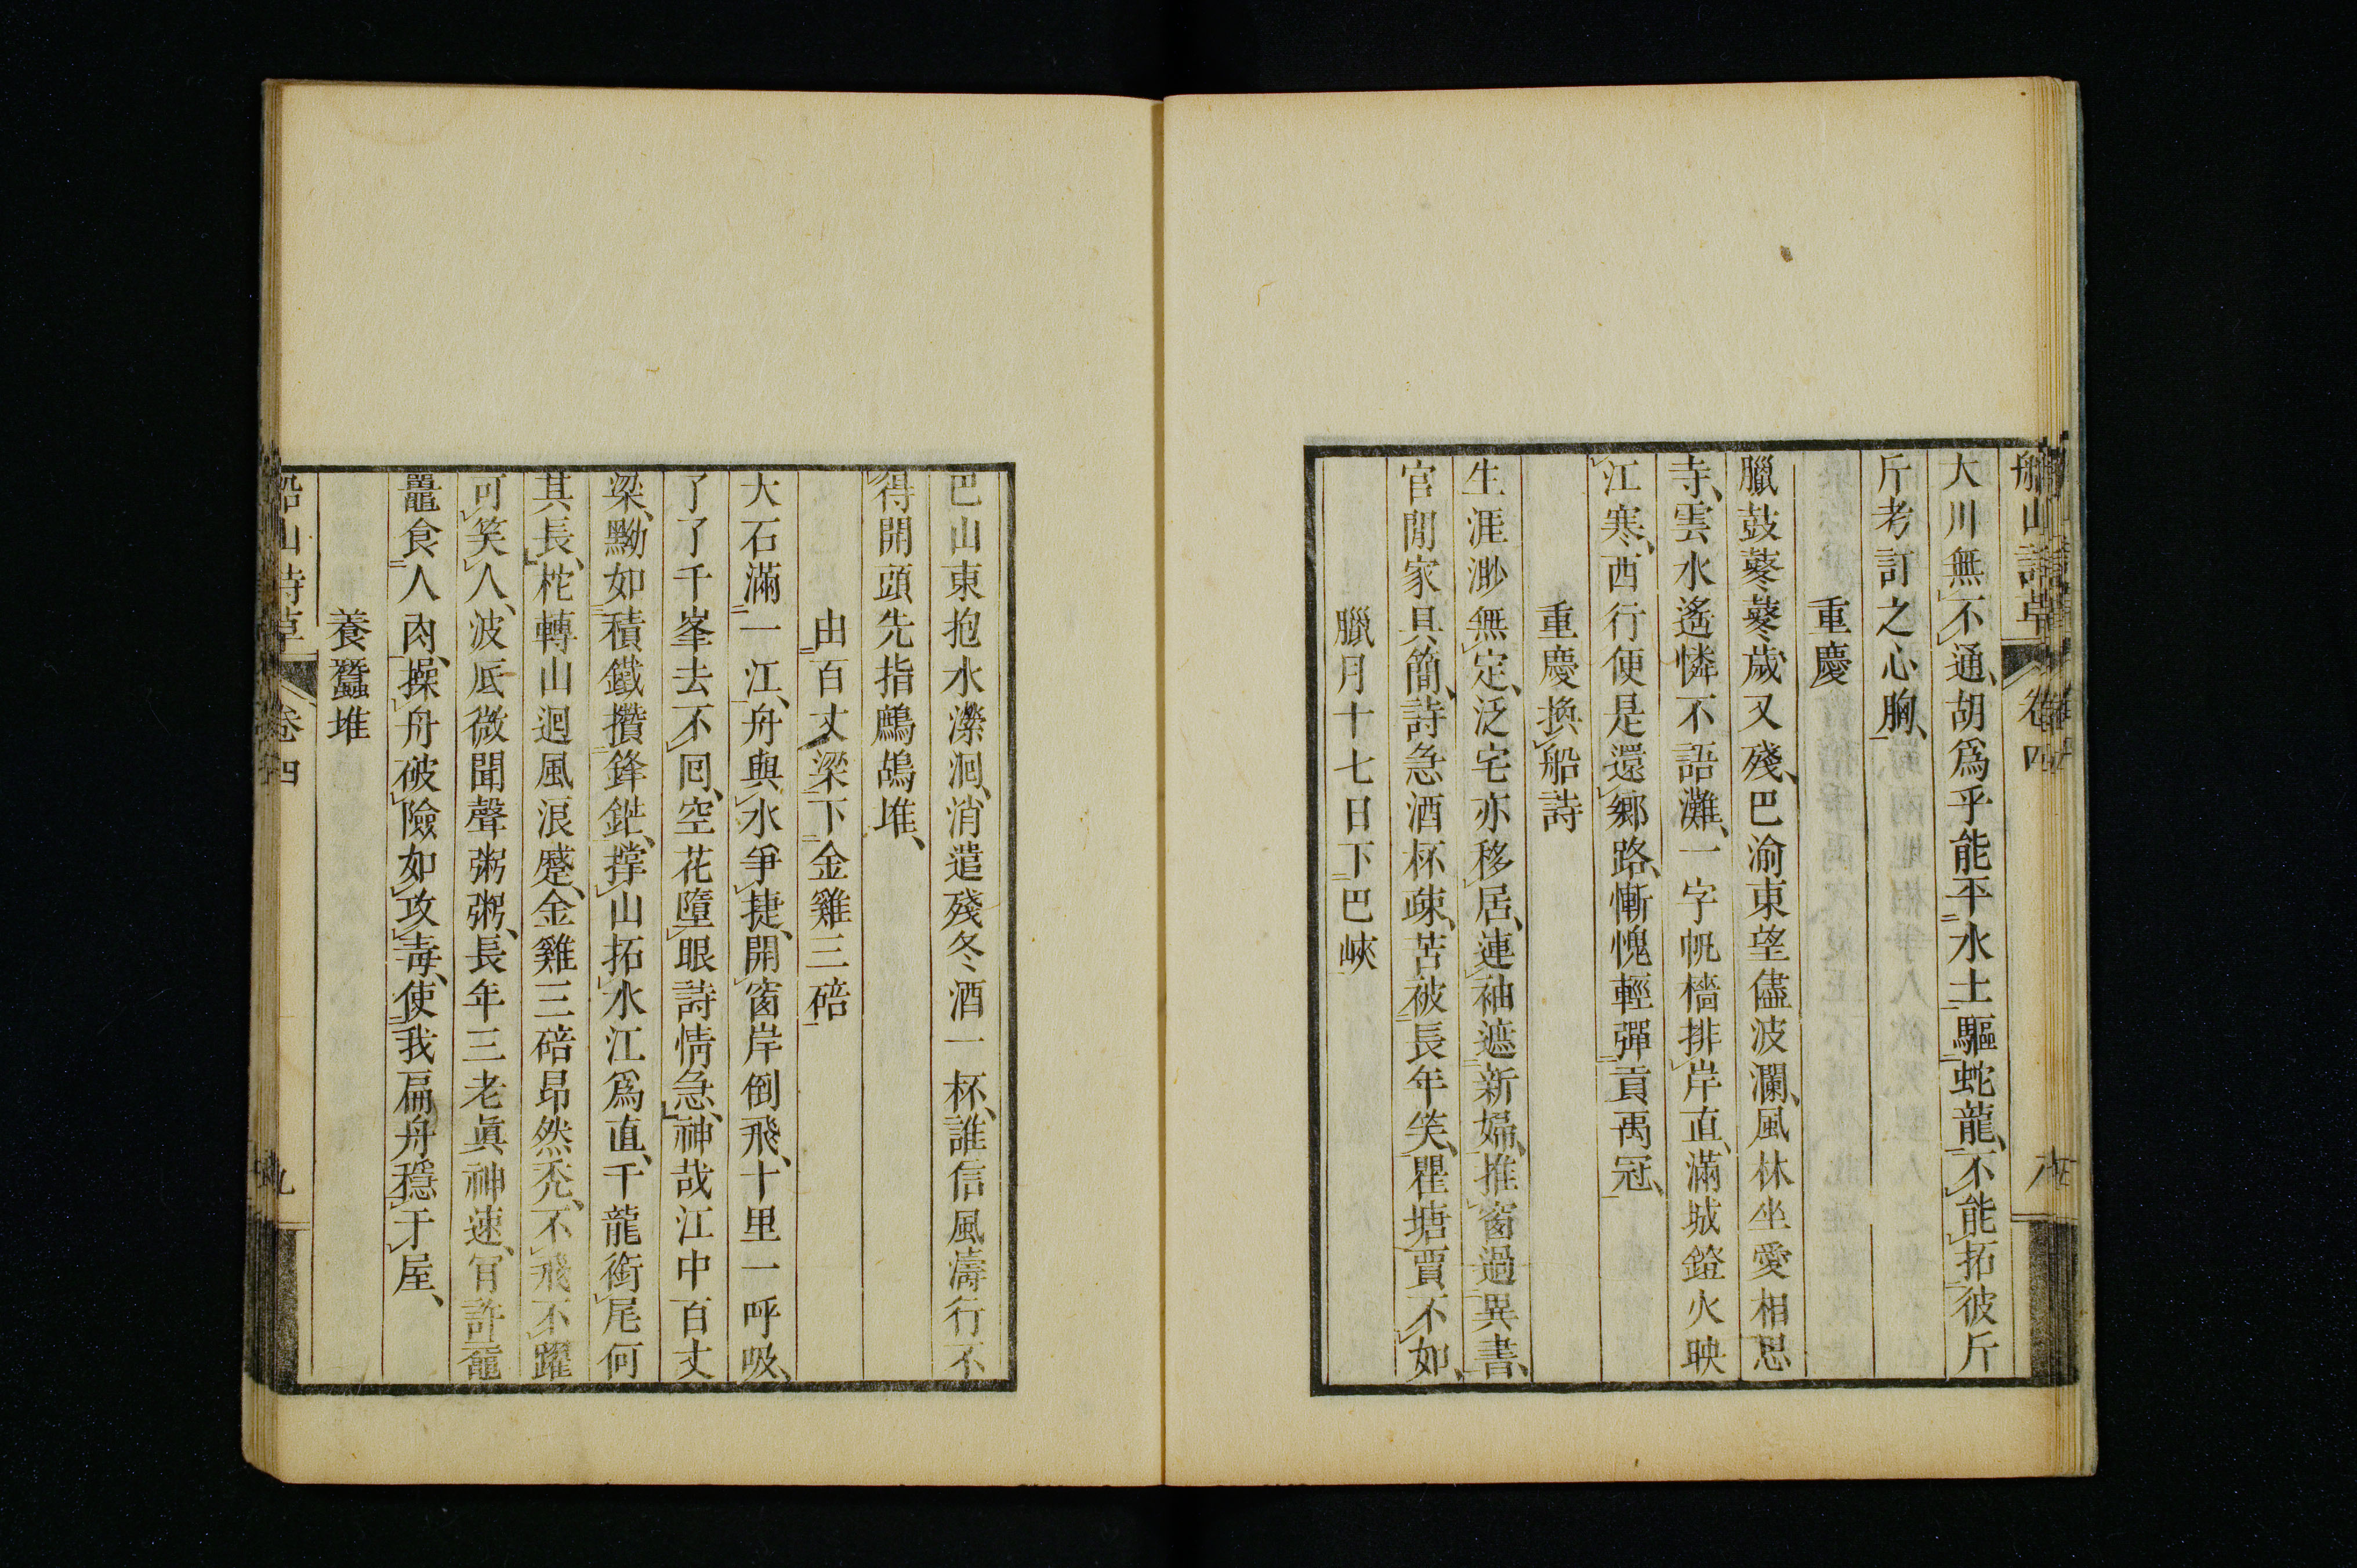 船山詩草 卷四
大川無不通、胡爲乎能平水土驅蛇龍、不能拓彼斤
斤考訂之心胸、
重慶
臘鼓鼕鼕歲又殘、巴渝東望儘波瀾、風林坐愛相思
寺、雲水遙憐不語灘、一字帆檣排岸直、滿城鐙火映
江寒、西行便是還鄉路、慚愧輕彈貢禹冠、
重慶換船詩
生涯渺無定、泛宅亦移居、連袖遮新婦、推窗過異書、
官閒家具簡、詩急酒杯疎、苦被長年笑、瞿塘賈不如、
臘月十七日下巴峽
巴山東抱水濼洄、消遣殘冬酒一杯、誰信風濤行不
得開頭先指鷓鴣堆、
由百丈梁下金雞三碚
大石滿一江、舟與水爭捷、開窗岸倒飛、十里一呼吸、
了了千峯去不回、空花墮眼詩情急、神哉江中百丈
梁、黝如積鐵攢鋒鋩、撐山拓水江爲直、千龍銜尾何
其長、柁轉山迴風浪蹙、金雞三碚昂然禿、不飛不躍
可笑人、波底微聞聲粥粥、長年三老眞神速、官許黿
鼉食人肉、操舟破險如攻毒、使我扁舟穩于屋、
養蠶堆
船山詩草 卷四 九